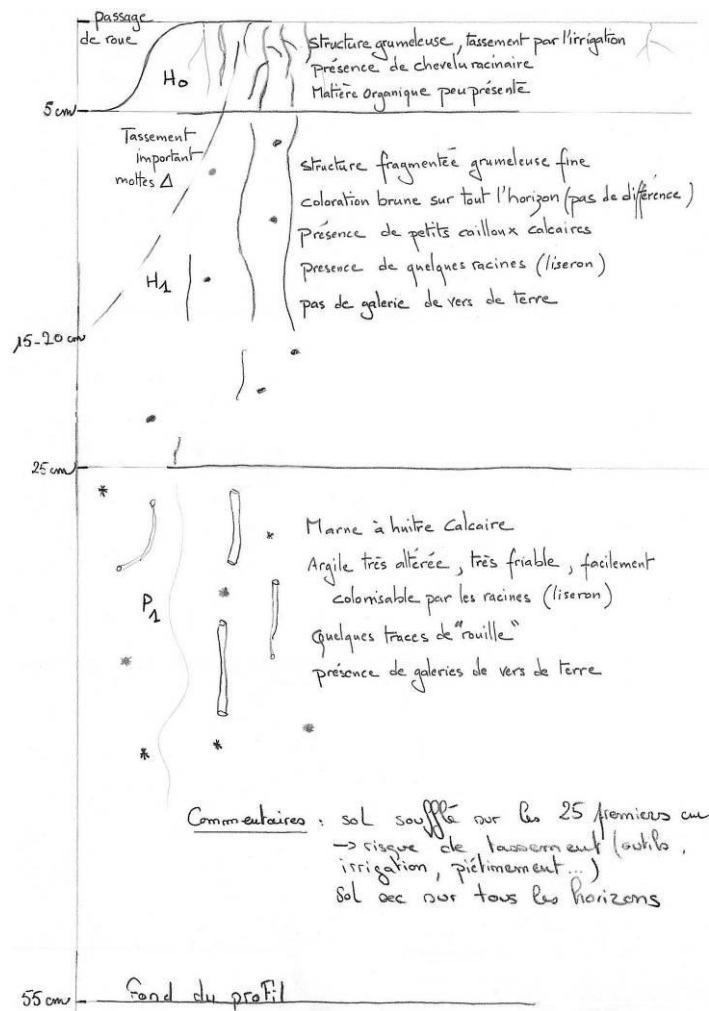 passage
de roue
structure grumeleuse, tassement par l'irrigation
présence de chevelu racinaire
Matière Organique peu présente
H0
5 cm
Tassement
important
mottes Δ
structure fragmentée grumeleuse fine
coloration brune sur tout l'horizon (pas de différence)
présence de petits cailloux calcaires
presence de quelques racines (liseron)
pas de galerie de vers de terre
H1
15-20 cm
25 cm
Marne à huitre Calcaire
Argile très altérée, très friable, facilement
colonisable par les racines (liseron)
P1
Quelques traces de "rouille"
présence de galeries de vers de terre
Commentaires : sol soufflé sur les 25 premiers cm
→ risque de tassement (outils,
irrigation, piétinement...)
Sol sec sur tous les horizons
Fond du profil
55 cm